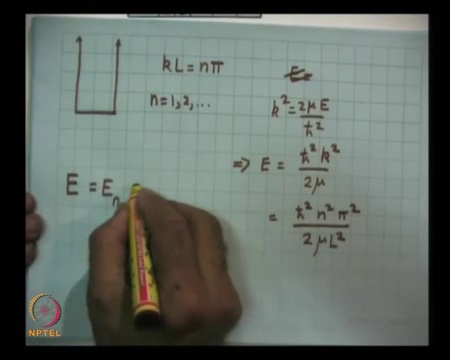 kL = nπ
n = 1, 2, ...
k² = 2μE / ħ²
⇒ E = ħ²k² / 2μ
= ħ² n² π² / 2μL²
E = Eₙ
NPTEL